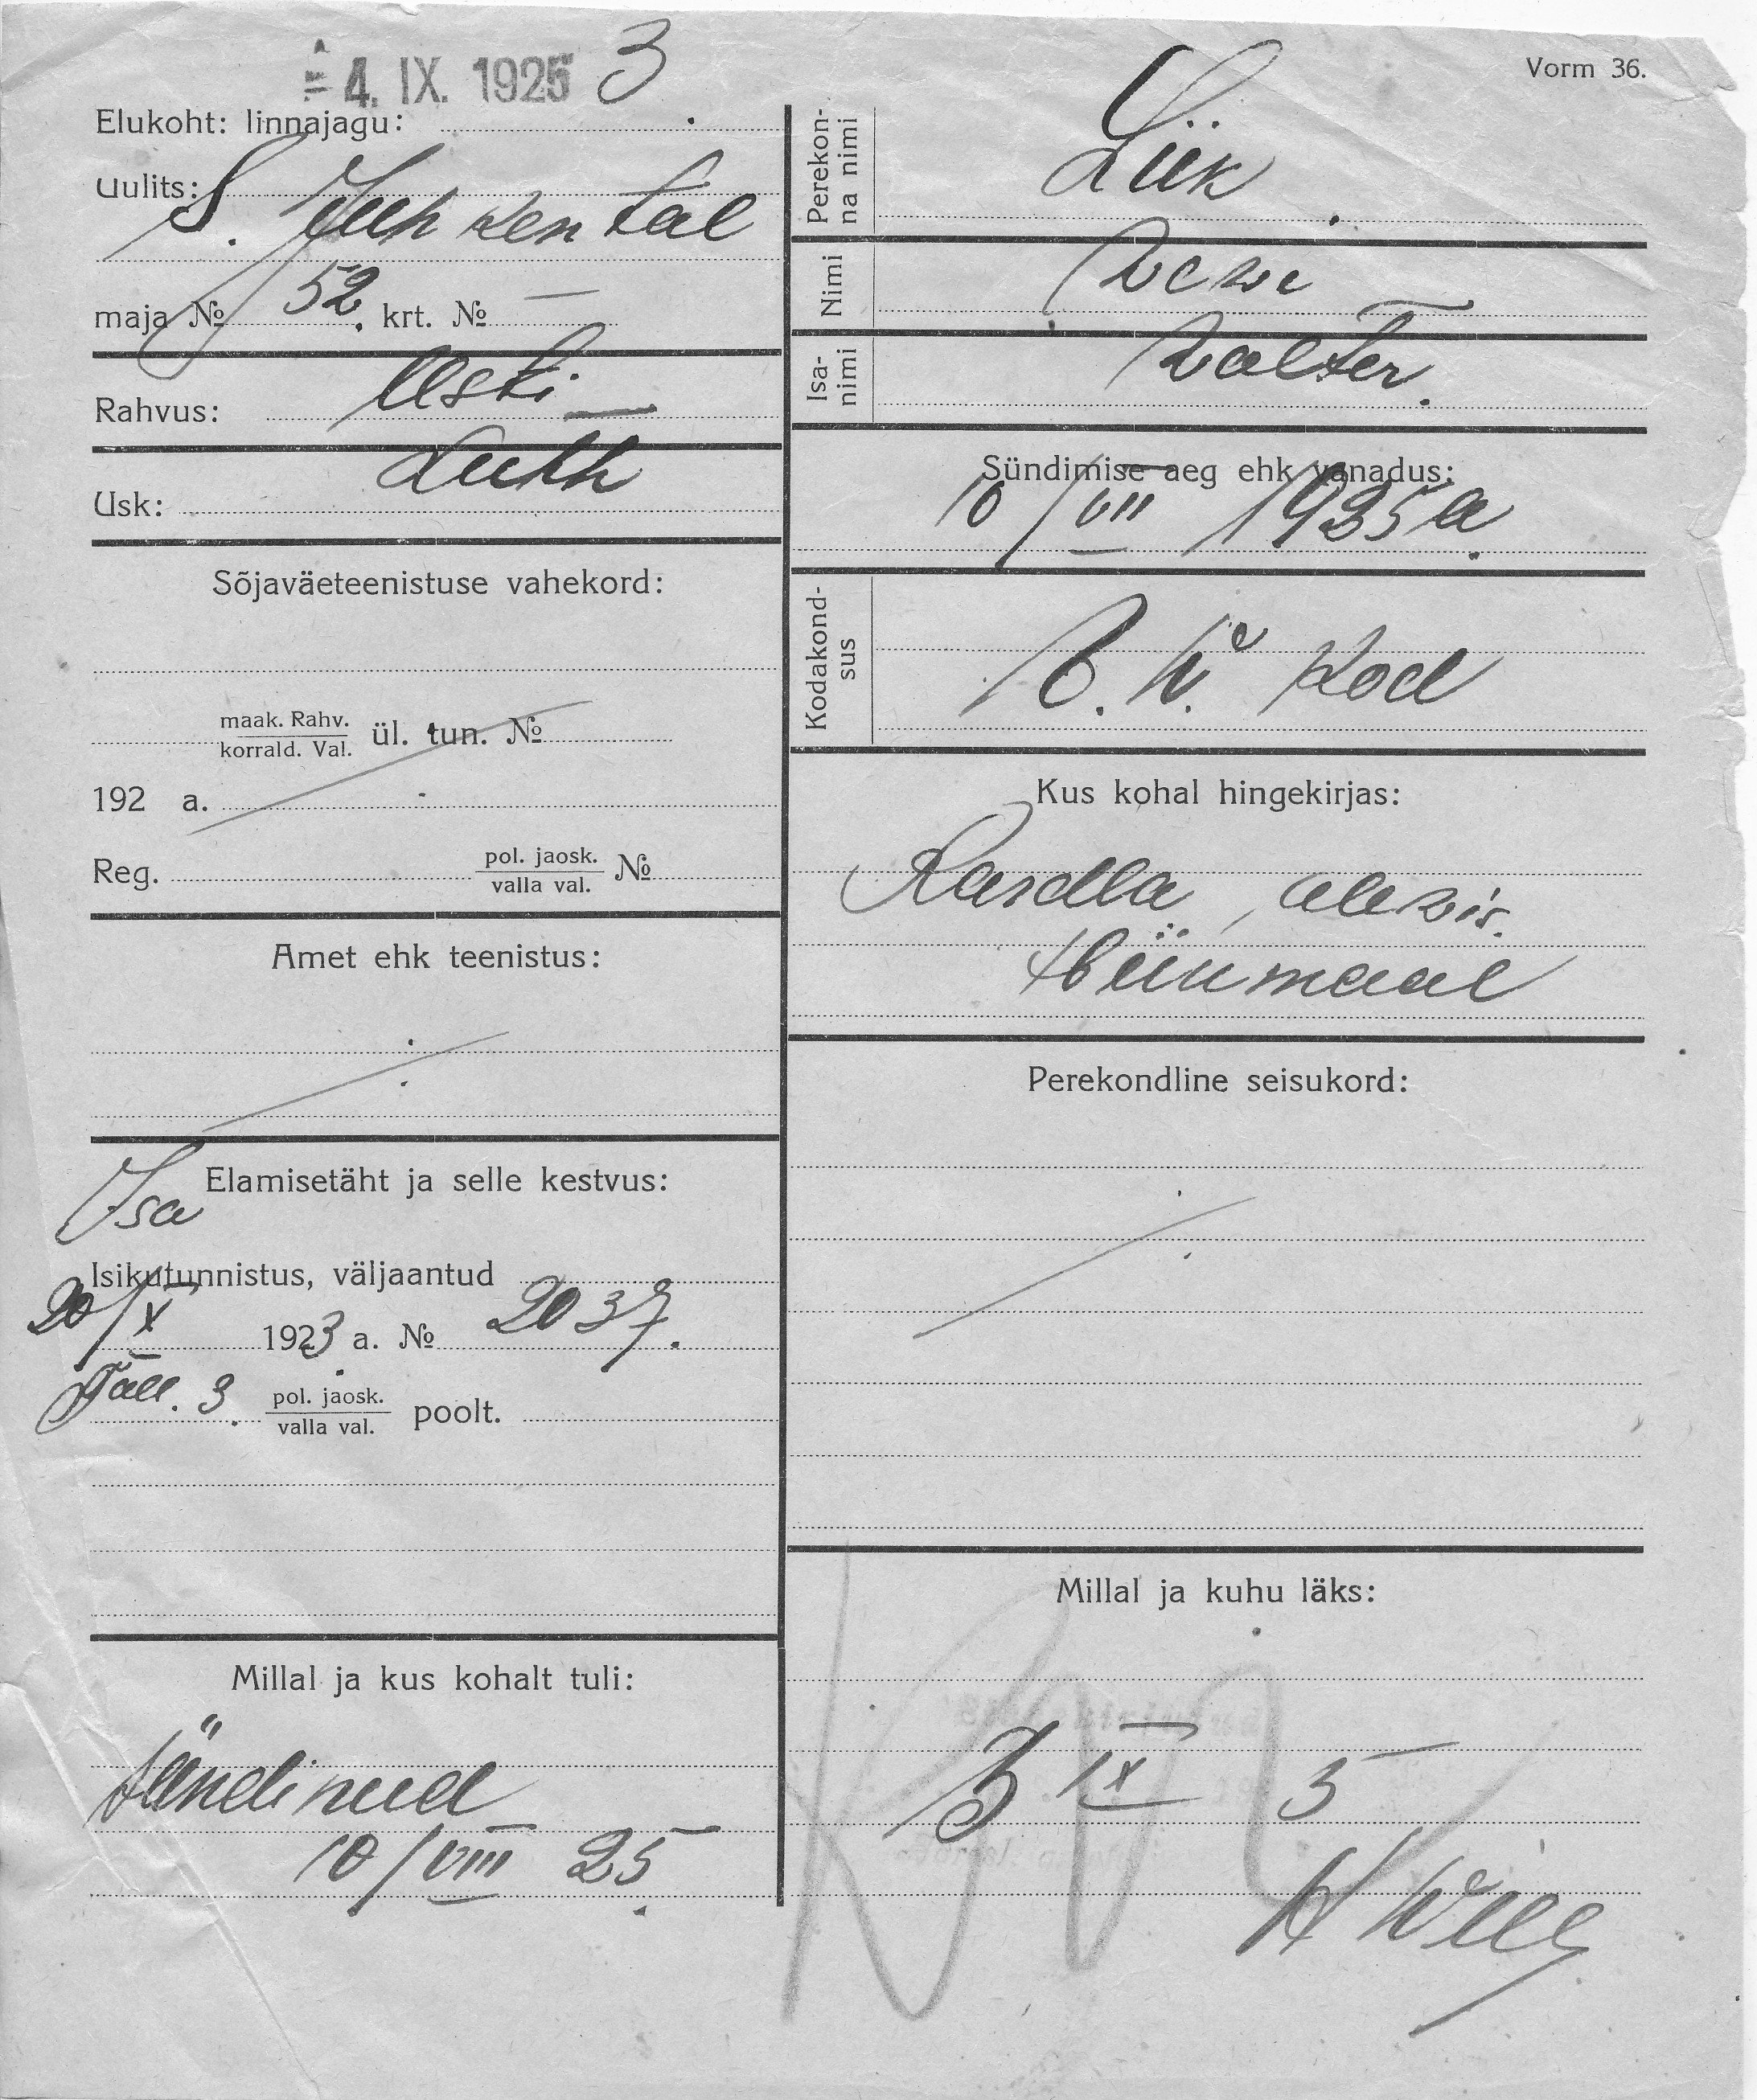 4. IX. 1925 3
Vorm 36.
Elukoht: linnajagu:
Uulits: S. Juhkental
maja № 52. krt. № —
Rahvus: Esti
Usk: Luth
Sõjaväeteenistuse vahekord:
maak. Rahv.
korrald. Val. ül. tun. №
192 a.
Reg. pol. jaosk.
valla val. №
Amet ehk teenistus:
Isa Elamisetäht ja selle kestvus:
Isikutunnistus, väljaantud
20/X 1923 a. № 2037.
Tall. 3. pol. jaosk.
valla val. poolt.
Millal ja kus kohalt tuli:
sündinud
10/VIII 25.
Perekon-
na nimi
Liik.
Nimi
Isa-
nimi
Valter.
Sündimise aeg ehk vanadus:
10/VIII 1925 a.
Kodakond-
sus
E. W. Kod
Kus kohal hingekirjas:
Kardla, alevis.
Hiiumaal
Perekondline seisukord:
Millal ja kuhu läks:
3 IX 5